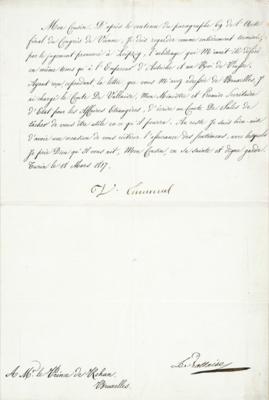 Mon Cousin. D'après le contenu du paragraphe 69 de l'Acte
final du Congrès de Vienne, Je dois regarder comme entièrement terminé,
par le jugement prononcé à Leipzig, l'arbitrage qui M'avait été déféré
en même tems qu'à l'Empereur d'Autriche et au Roi de Prusse.
Ayant reçu cependant la lettre que vous M'avez adressée de Bruxelles, J'
ai chargé le Comte De Vallaise, Mon Ministre et Premier Secrétaire
d'Etat pour les Affaires Etrangères, d'écrire au Comte De Sales de
tâcher de vous être utile en ce qu'il pourra. Au reste Je suis bien aise
d'avoir une occasion de vous réitérer l'assurance des sentimens, avec lesquels
Je prie Dieu qu'Il vous ait, Mon Cousin, en sa sainte et digne garde.
Turin le 18 Mars 1817.
V. Emanuel
De Vallaise
A Mr. le Prince de Rohan
Bruxelles.